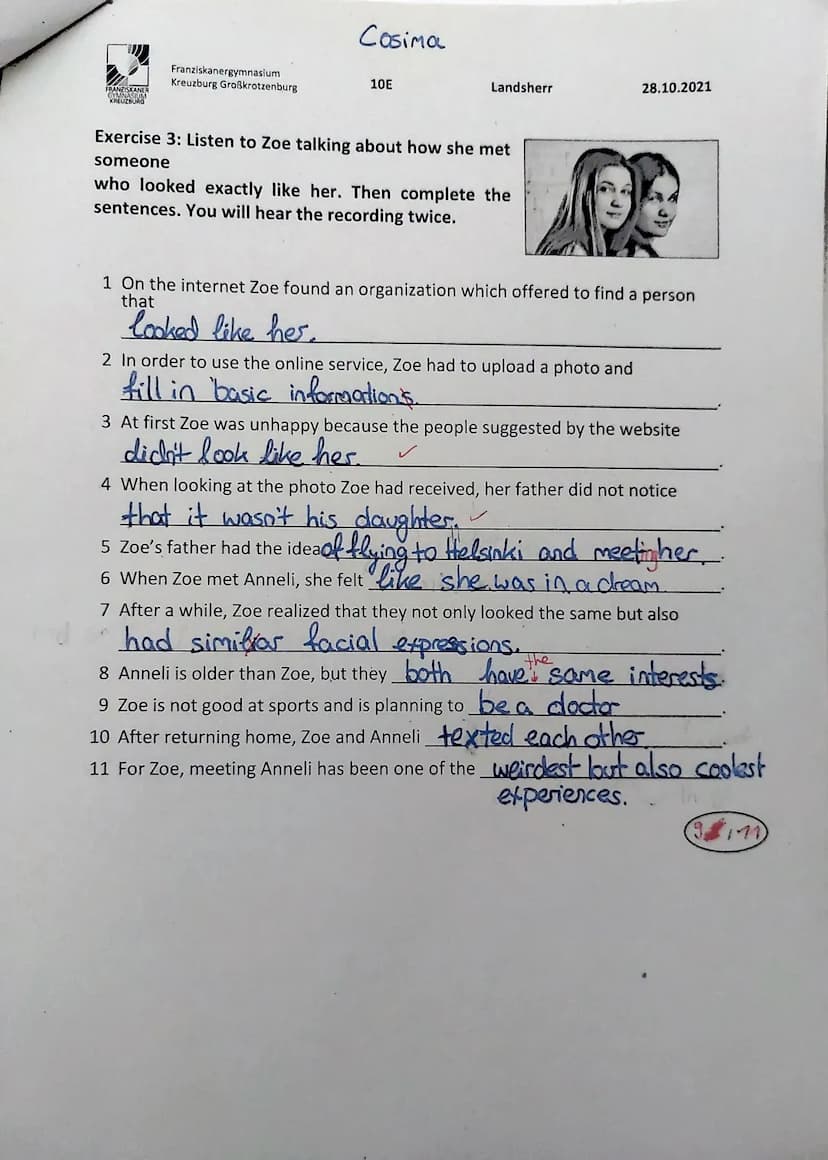 Cosima
FRANZISKANER
GYMNASIUM
KREUZBURG
Franziskanergymnasium
Kreuzburg Großkrotzenburg
10E
Landsherr
28.10.2021
Exercise 3: Listen to Zoe talking about how she met
someone
who looked exactly like her. Then complete the
sentences. You will hear the recording twice.
1 On the internet Zoe found an organization which offered to find a person
that
looked like her.
2 In order to use the online service, Zoe had to upload a photo and
fill in basic informations.
3 At first Zoe was unhappy because the people suggested by the website
didn't look like her.
4 When looking at the photo Zoe had received, her father did not notice
that it wasn't his daughter.
5 Zoe's father had the idea of flying to Helsinki and meeting her.
6 When Zoe met Anneli, she felt like she was in a dream.
7 After a while, Zoe realized that they not only looked the same but also
had similar facial expressions.
the
8 Anneli is older than Zoe, but they both have same interests.
9 Zoe is not good at sports and is planning to be a doctor.
10 After returning home, Zoe and Anneli texted each other.
11 For Zoe, meeting Anneli has been one of the weirdest but also coolest
experiences.
9 /11